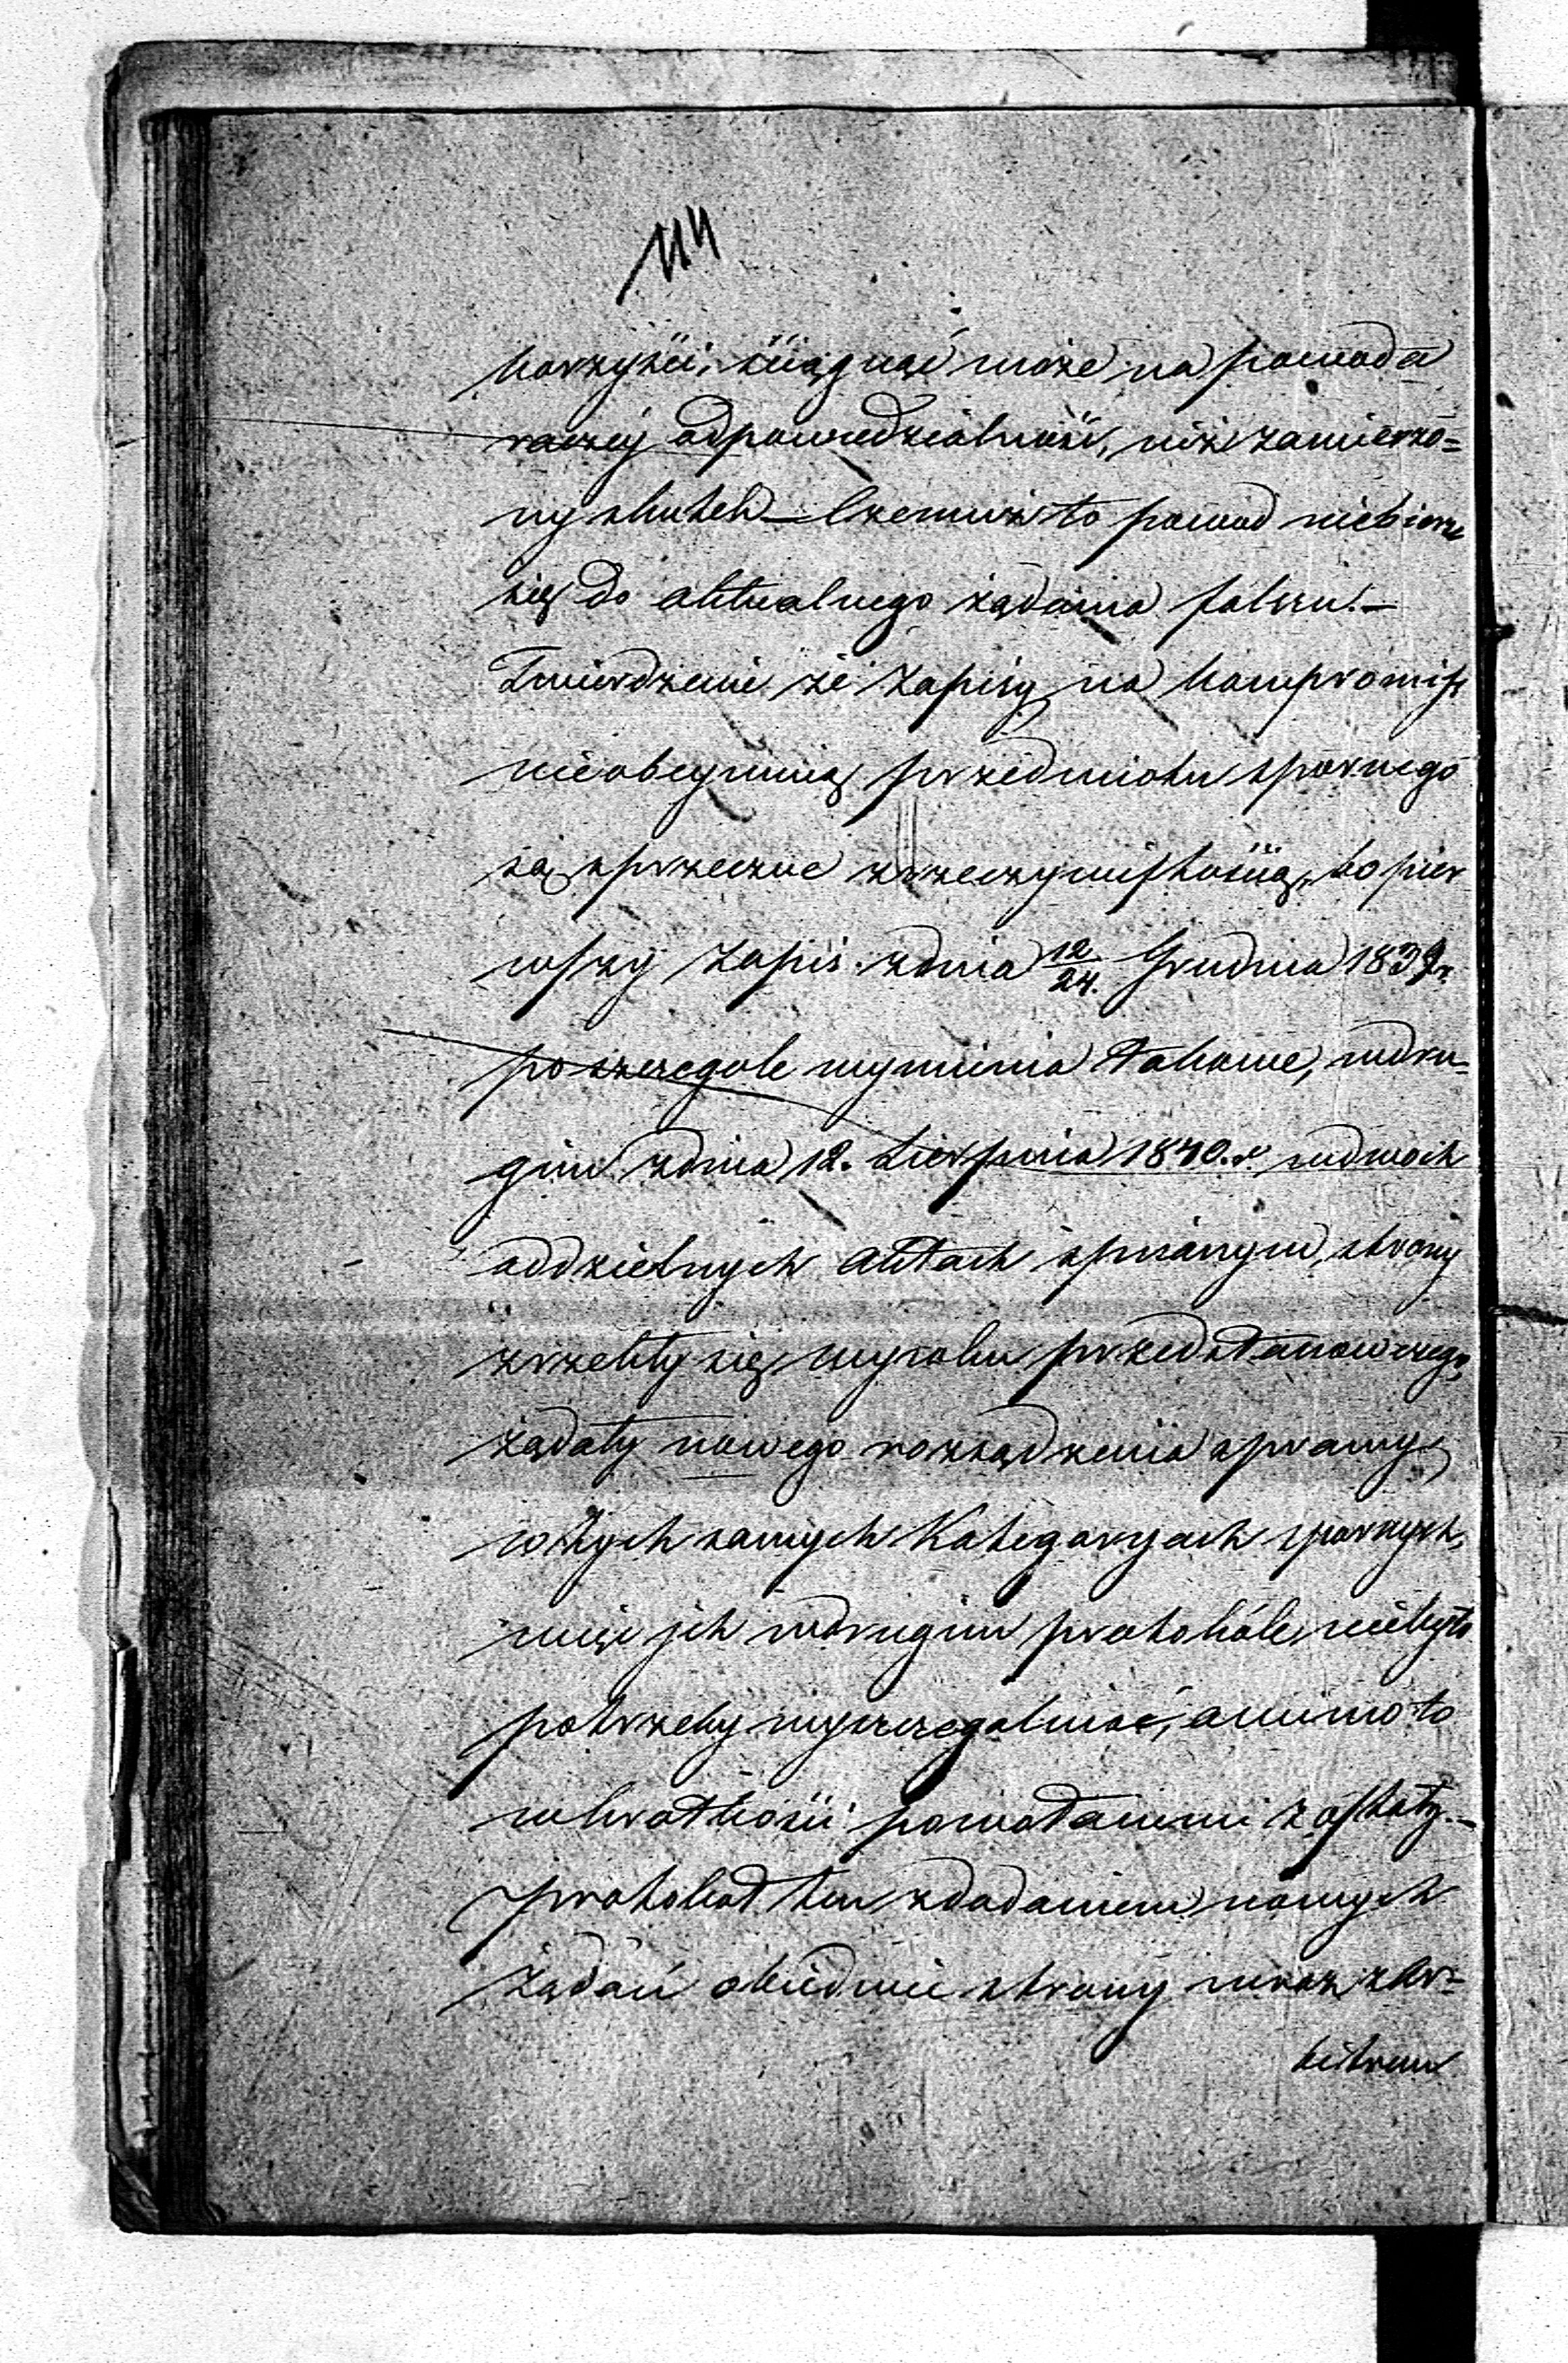 114
korzyści, ściągnąć może na powoda
raczéj odpowiedzialność, niż zamierzo=
ny skutek — Czemuż to powod niebierze
się do aktualnego żądania fałszu. —
Twierdzenie że zapisy na kompromiss
nieobeymuią przedmiotu spornego
są sprzeczne z rzeczywistością, bo pier
wszy zapis z dnia 12/24. Grudnia 1839 r.
poszczegole wymienia takowe, w dru=
gim z dnia 12. Sierpnia 1840. r. w dwoch
oddzielnych aktach spisanym, strony
zrzekły się wyroku przedstanowczego,
żądały nowego rozsądzenia sprawy
w tych samych kategoryach spornych,
więc ich w drugim protokóle niebyło
potrzeby wyszczegolniać, a mimo to
w krotkości powołanemi zostały. —
Protokoł ten z dodaniem nowych
żądań obiedwie strony wraz z Ar=
bitrem